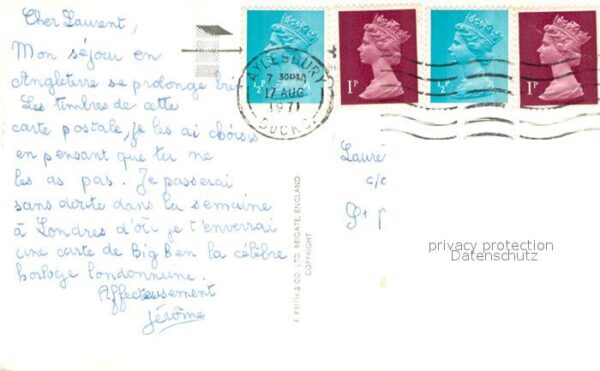 Cher Laurent,
Mon séjour en
Angleterre se prolonge
Les timbres de cette
carte postale, je les ai choisis
en pensant que tu ne
les as pas. Je passerai
sans doute dans la semaine
à Londres d'où je t'enverrai
une carte de Big Ben la célèbre
horloge londonnienne.
Affectueusement
Jérôme
AYLESBURY
7 30PM
17 AUG
1971
BUCKS
½P
1P
½P
1P
c/o
privacy protection
Datenschutz
F. FRITH & CO. LTD. REIGATE, ENGLAND
COPYRIGHT